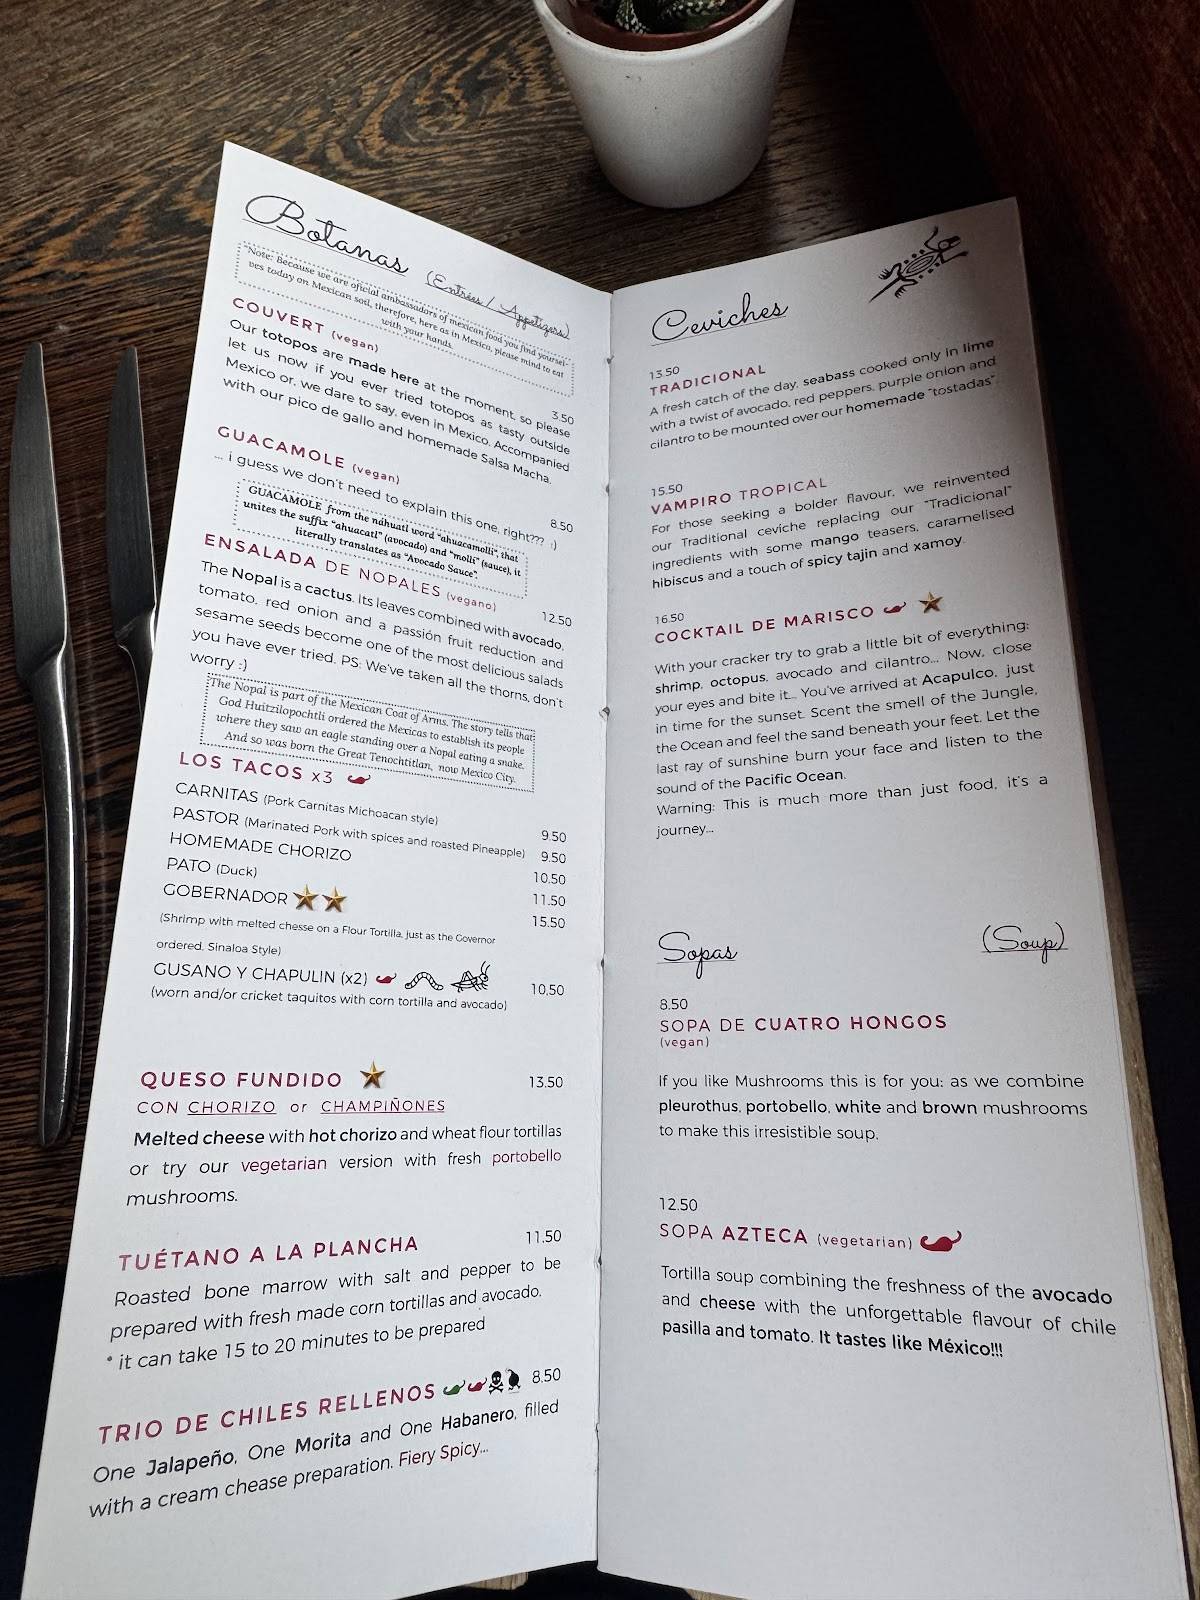 Botanas (Entrées / Appetizers)
"Note: Because we are oficial ambassadors of mexican food you find yoursel-
ves today on Mexican soil, therefore, here as in Mexico, please mind to eat
with your hands.
COUVERT (vegan)
3.50
Our totopos are made here at the moment, so please
let us now if you ever tried totopos as tasty outside
Mexico or, we dare to say, even in Mexico. Accompanied
with our pico de gallo and homemade Salsa Macha.
GUACAMOLE (vegan)
8.50
... i guess we don't need to explain this one, right??? :)
GUACAMOLE from the náhuatl word "ahuacamolli", that
unites the suffix "ahuacatl" (avocado) and "molli" (sauce), it
literally translates as "Avocado Sauce".
ENSALADA DE NOPALES (vegano)
12.50
The Nopal is a cactus. Its leaves combined with avocado,
tomato, red onion and a passión fruit reduction and
sesame seeds become one of the most delicious salads
you have ever tried. PS: We've taken all the thorns, don't
worry :)
The Nopal is part of the Mexican Coat of Arms. The story tells that
God Huitzilopochtli ordered the Mexicas to establish its people
where they saw an eagle standing over a Nopal eating a snake.
And so was born the Great Tenochtitlan, now Mexico City.
LOS TACOS x3
CARNITAS (Pork Carnitas Michoacan style) 9.50
PASTOR (Marinated Pork with spices and roasted Pineapple) 9.50
HOMEMADE CHORIZO 10.50
PATO (Duck) 11.50
GOBERNADOR 15.50
(Shrimp with melted chesse on a Flour Tortilla, just as the Governor
ordered, Sinaloa Style)
GUSANO Y CHAPULIN (x2) 10,50
(worn and/or cricket taquitos with corn tortilla and avocado)
QUESO FUNDIDO 13.50
CON CHORIZO or CHAMPIÑONES
Melted cheese with hot chorizo and wheat flour tortillas
or try our vegetarian version with fresh portobello
mushrooms.
TUÉTANO A LA PLANCHA 11.50
Roasted bone marrow with salt and pepper to be
prepared with fresh made corn tortillas and avocado.
* it can take 15 to 20 minutes to be prepared
TRIO DE CHILES RELLENOS 8.50
One Jalapeño, One Morita and One Habanero, filled
with a cream chease preparation. Fiery Spicy...
Ceviches
13.50
TRADICIONAL
A fresh catch of the day, seabass cooked only in lime
with a twist of avocado, red peppers, purple onion and
cilantro to be mounted over our homemade "tostadas".
15.50
VAMPIRO TROPICAL
For those seeking a bolder flavour, we reinvented
our Traditional ceviche replacing our "Tradicional"
ingredients with some mango teasers, caramelised
hibiscus and a touch of spicy tajin and xamoy.
16.50
COCKTAIL DE MARISCO
With your cracker try to grab a little bit of everything:
shrimp, octopus, avocado and cilantro... Now, close
your eyes and bite it... You've arrived at Acapulco, just
in time for the sunset. Scent the smell of the Jungle,
the Ocean and feel the sand beneath your feet. Let the
last ray of sunshine burn your face and listen to the
sound of the Pacific Ocean.
Warning: This is much more than just food, it's a
journey...
Sopas (Soup)
8.50
SOPA DE CUATRO HONGOS
(vegan)
If you like Mushrooms this is for you: as we combine
pleurothus, portobello, white and brown mushrooms
to make this irresistible soup.
12.50
SOPA AZTECA (vegetarian)
Tortilla soup combining the freshness of the avocado
and cheese with the unforgettable flavour of chile
pasilla and tomato. It tastes like México!!!